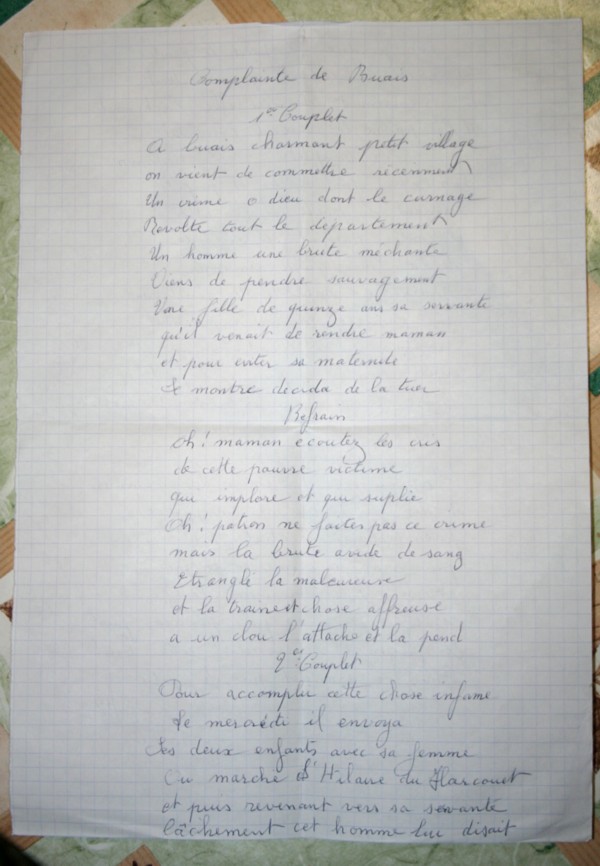 Complainte de Buais
1er Couplet
A buais charmant petit village
on vient de commettre recemment
Un crime o dieu dont le carnage
Revolte tout le departement
Un homme une brute méchante
Viens de pendre sauvagement
Une fille de quinze ans sa servante
qu'il venait de rendre maman
et pour eviter sa maternite
Le montre decida de la tuer
Refrain
Oh! maman ecoutez les cris
de cette pauvre victime
qui implore et qui suplie
Oh! patron ne faites pas ce crime
mais la brute avide de sang
Etrangle la maleureuse
et la trainent chose affreuse
a un clou l'attache et la pend
2e Couplet
Pour accomplir cette chose infame
Le mercredi il envoya
Ses deux enfants avec sa femme
Au marché St Hilaire du Harcouet
et puis revenant vers sa servante
lâchement cet homme lui disait